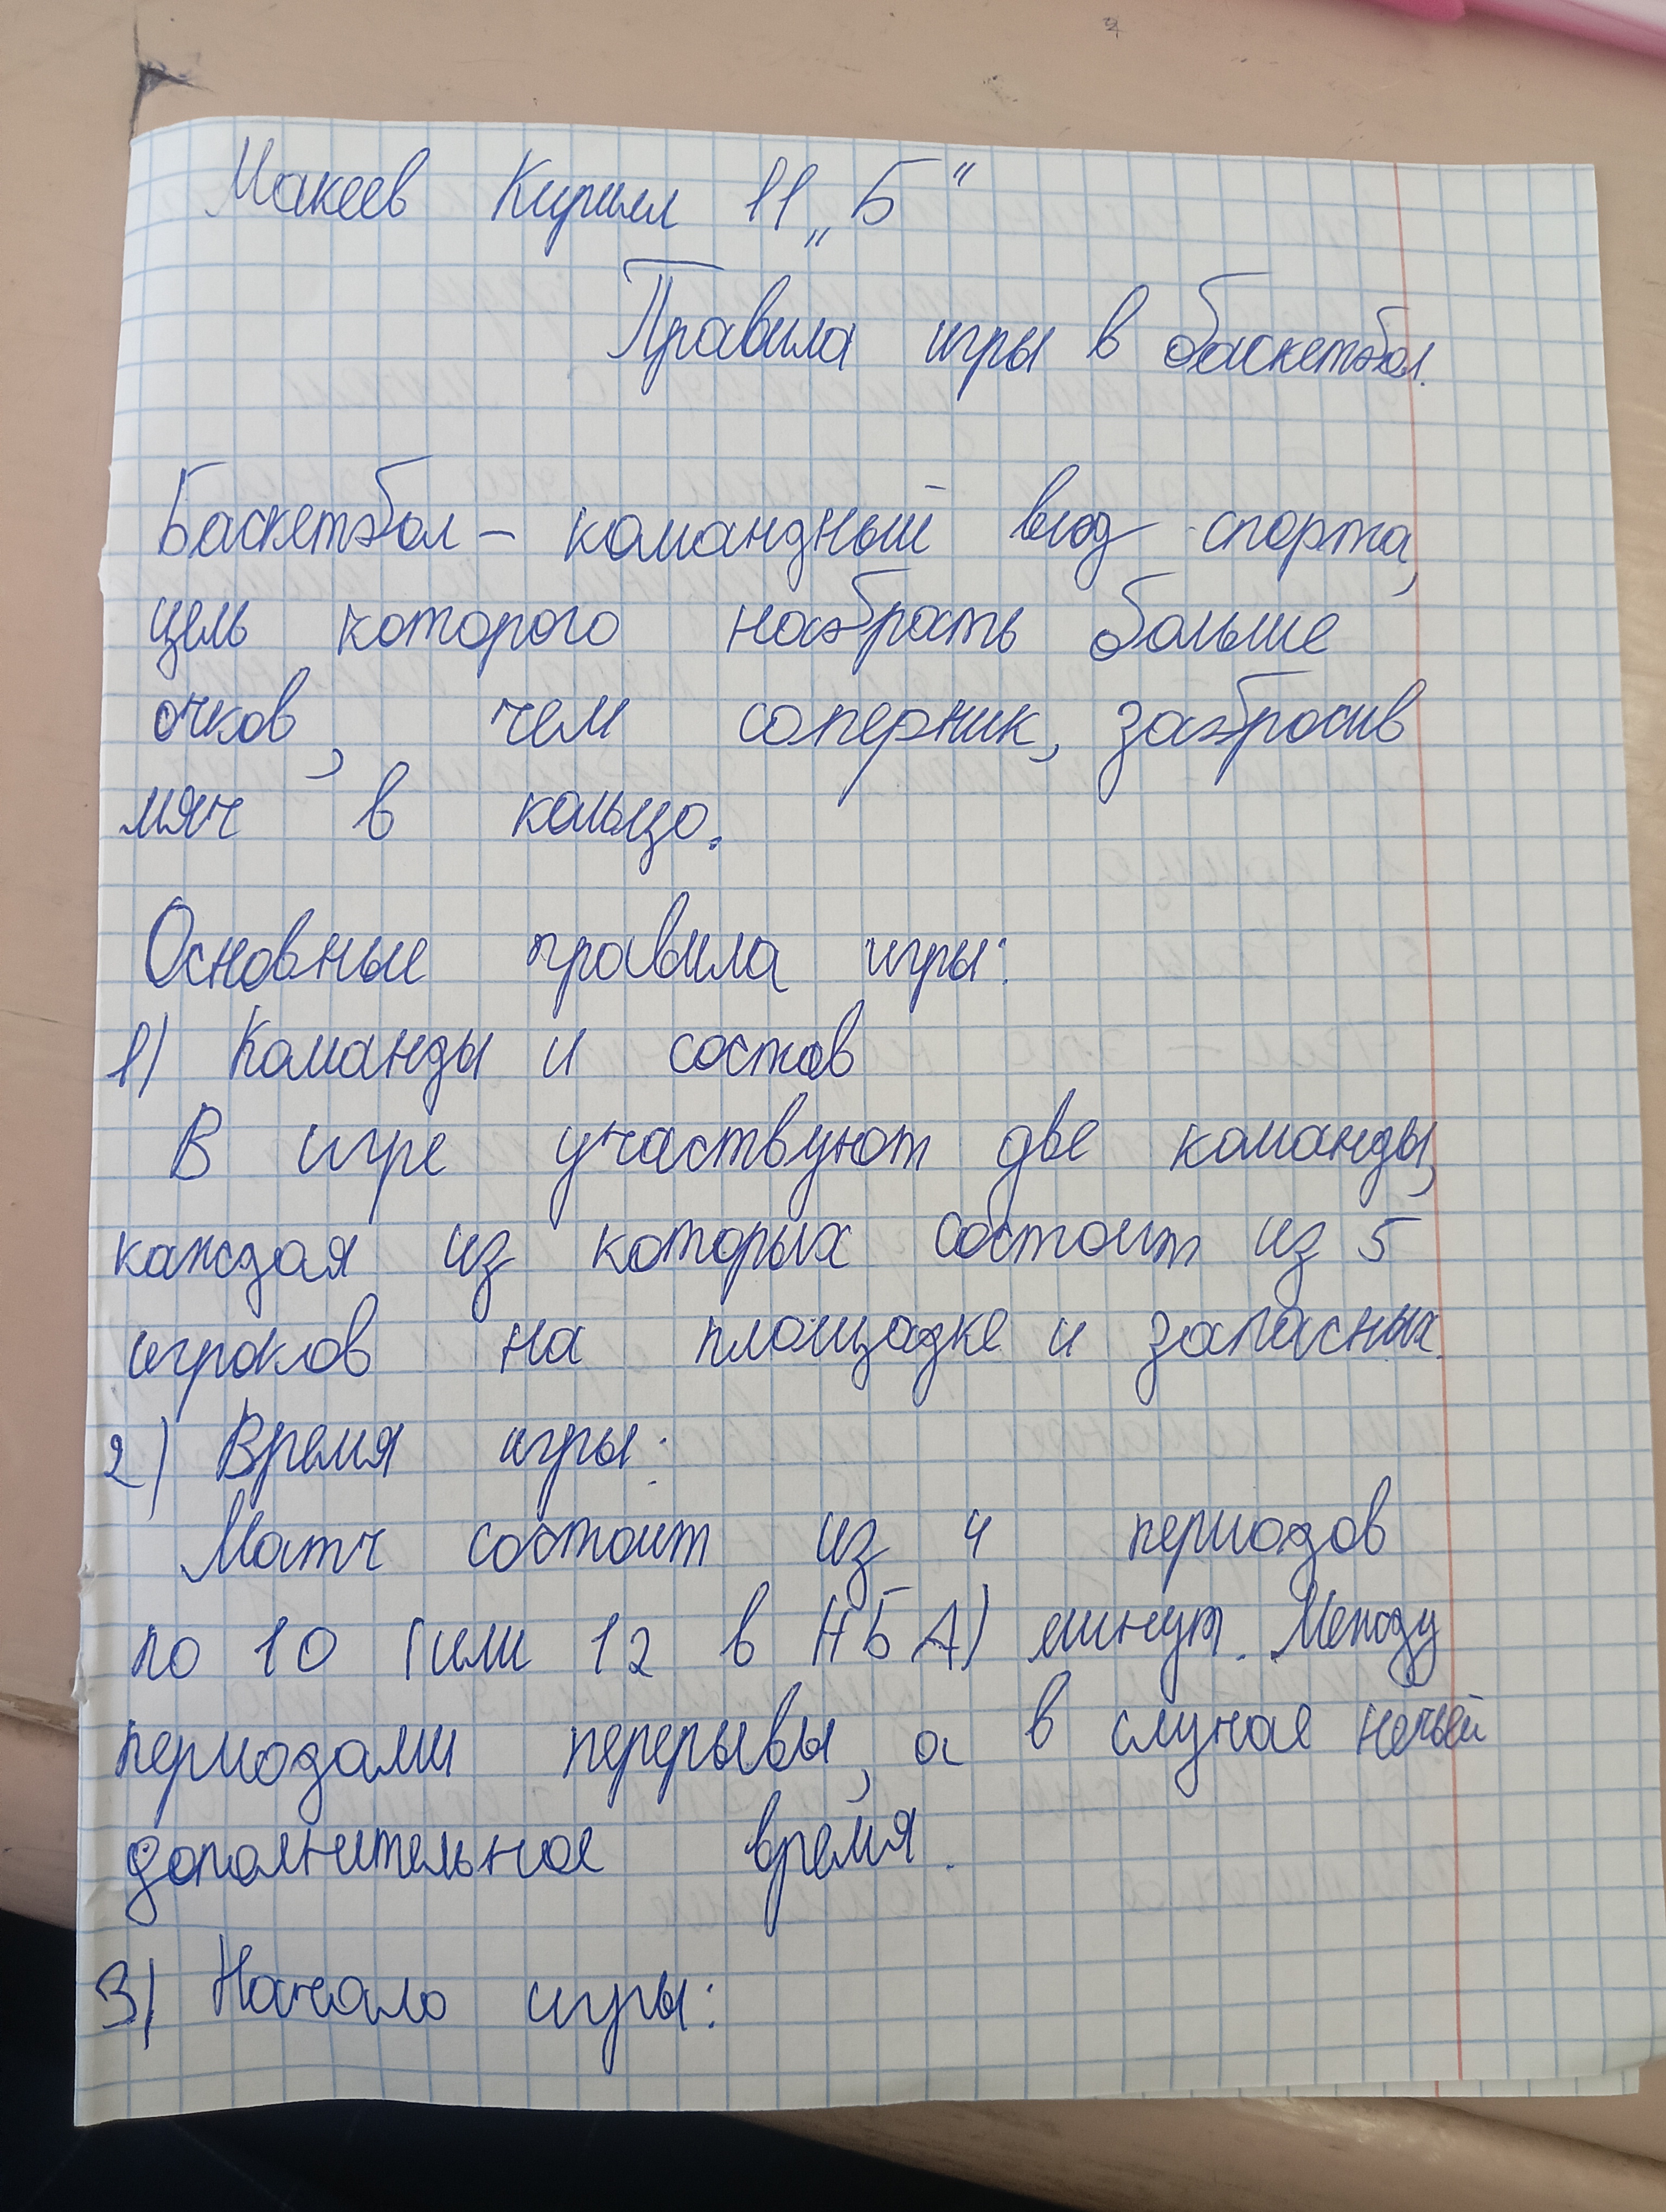 Макеев Кирилл 11 „Б"
Правила игры в баскетбол.
Баскетбол – командный вид спорта,
цель которого набрать больше
очков, чем соперник, забросив
мяч в кольцо.
Основные правила игры:
1) Команды и состав
В игре участвуют две команды,
каждая из которых состоит из 5
игроков на площадке и запасных.
2) Время игры:
Матч состоит из 4 периодов
по 10 (или 12 в НБА) минут. Между
периодами перерывы, а в случае ничьей
дополнительное время.
3) Начало игры: